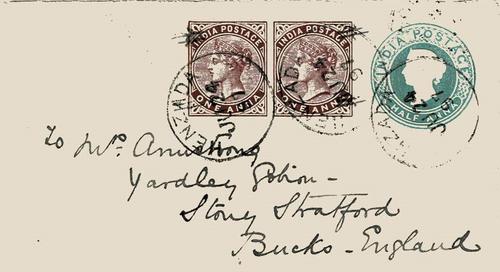 INDIA POSTAGE INDIA POSTAGE INDIA POSTAGE
ONE ANNA ONE ANNA HALF ANNA
To Mrs Armstrong
Yardley Gobion -
Stony Stratford
Bucks - England